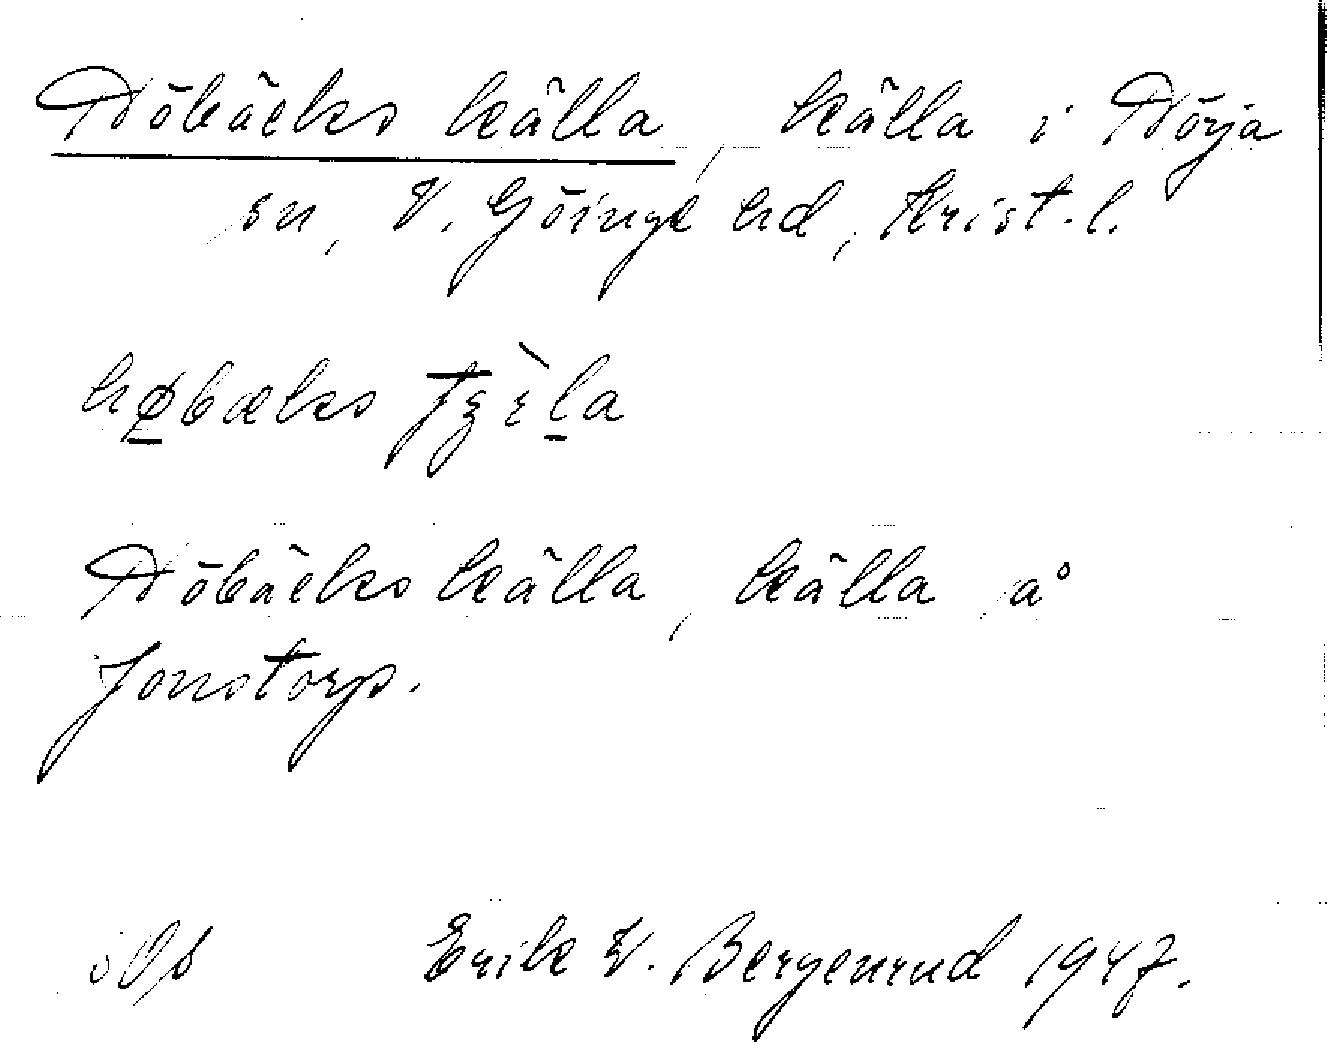 Höbäcks källa, källa i Hörja
sn, V. Göinge hd, Krist. l.
høbæks tʒɛ̀la
Höbäcks källa, källa å
Jonstorp.
Erik W. Bergenrud 1947.